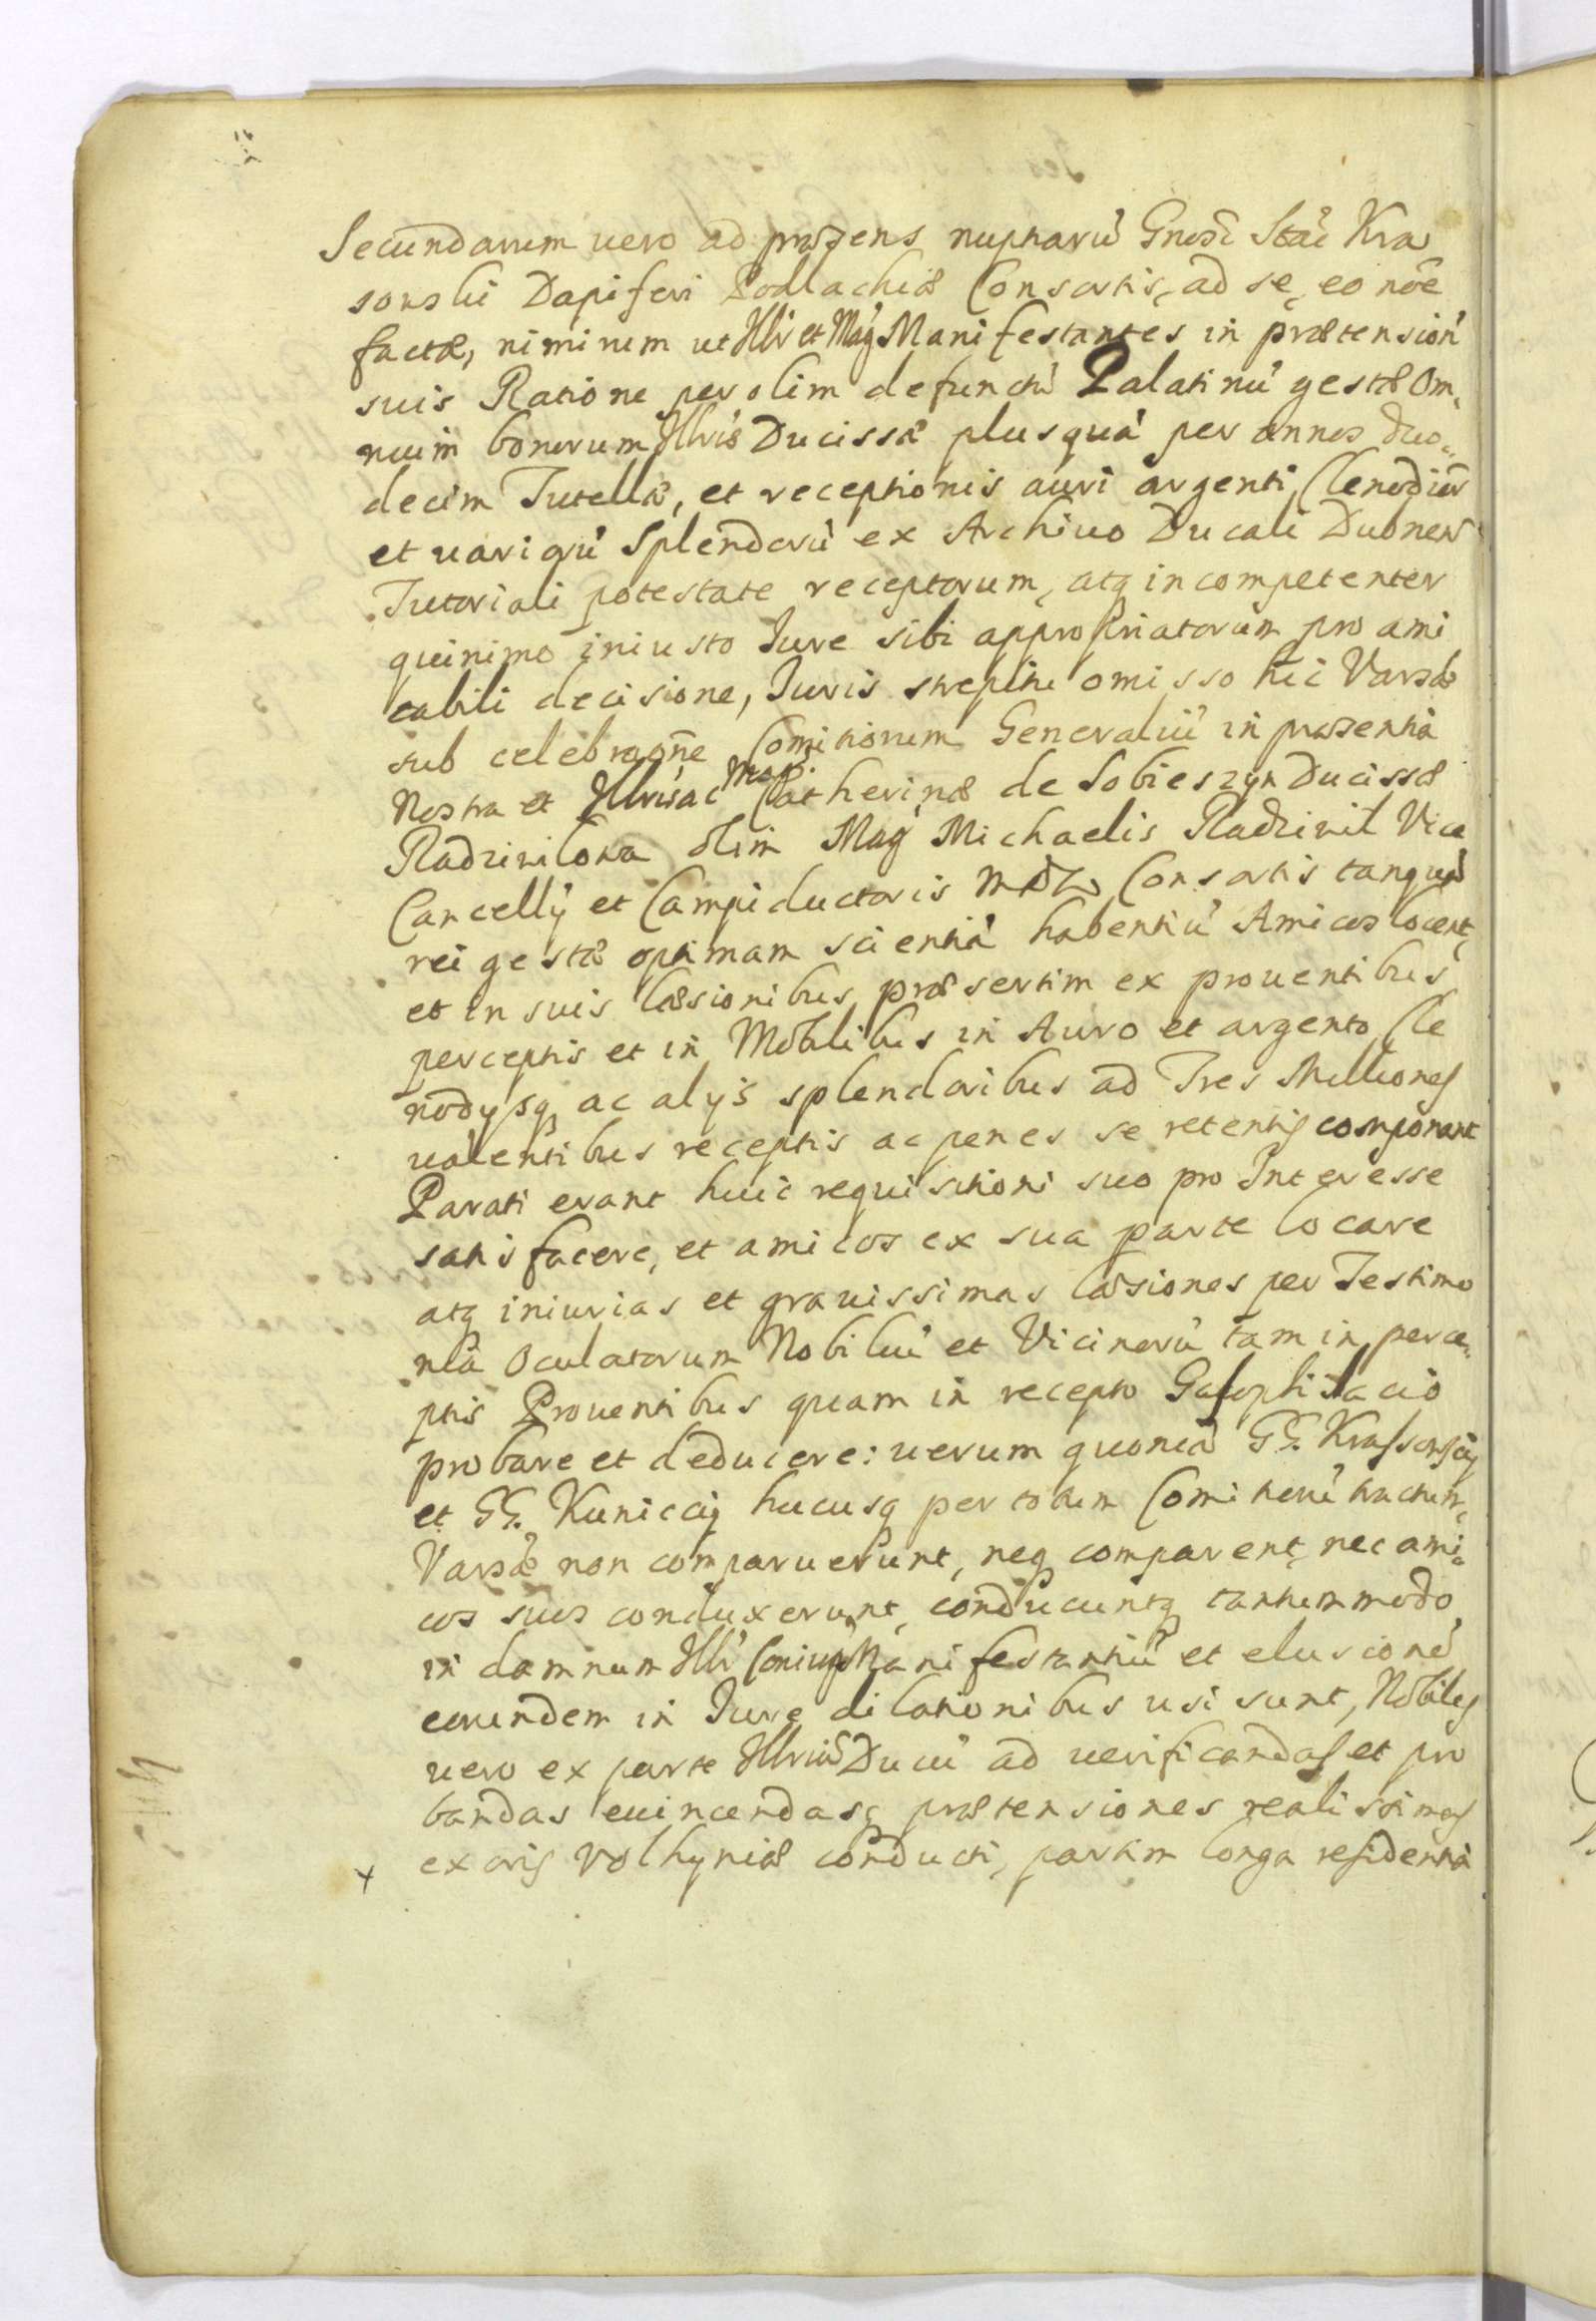 Secundarum uero ad præsens nuptiarũ Gnosi Stãi Kra
sowski Dapiferi Podlachiæ Consortis, ad se, eo nõe
factæ, nimirum ut Illri et Mag Manifestantes in prætensiõn
suis Ratione per olim defunctũ Palatinũ gestæ Om,
nium bonorum Illris Ducissæ plusquã per annos duo,,
decim Tutellæ, et receptionis auri argenti, Clenodior
et uariorũ Splendorũ ex Archiuo Ducali Dubnen
Tutoriali potestate receptorum, atq incompetenter
quinimo iniusto Jure sibi appropriatorum pro ami
cabili decisione, Juris strepitu omisso hic Varsæ
sub celebraone Comitiorum Generaliũ in præsentia
Nostra et Illris ac Mag. Catherinæ de Sobieszyn Ducissæ
Radziwilowa olim Mag Michaelis Radziwil Vice
Cancellÿ et Campiductoris MDL Consortis tanquã
rei gestæ optimam scientiã habentiũ Amicos locent,
et in suis læsionibus præsertim ex prouentibus
perceptis et in Mobilibus in Auro et argento Cle
nodÿsq ac alÿs splendoribus ad Tres Milliones
ualentibus receptis ac penes se retentis componant
Parati erant huic requisitioni suo pro Interesse
satisfacere, et amicos ex sua parte locare
atq iniurias et grauissimas læsiones per Testimo
nia Oculatorum Nobiliũ et Vicinorũ tam in perce,,
ptis Prouentibus quam in recepto Gazophilacio
probare et deducere: uerum quoniã GG. Krassowscÿ
et GG. Kuniccÿ hucusq per totum Comitiorũ tractum,
Varsæ non comparuerunt, neq comparent, nec ami,,
cos suos conduxerunt, conducuntq tantummodo
in damnum Illr Coniug Manifestantiũ et elusionẽ
eorundem in Jure dilationibus usi sunt, Nobiles
uero ex parte Illriũ Ducũ ad uerificandas et pro
bandas euincendasq prætensiones realissimas
x ex oris Volhyniæ conducti, partim longa residentia